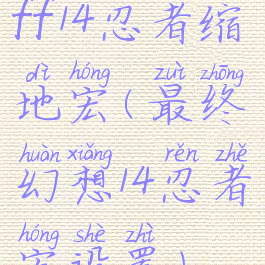 ff14忍者缩
dì hóng zuì zhōng
地宏(最终
huàn xiǎng rěn zhě
幻想14忍者
hóng shè zhì
宏设置)